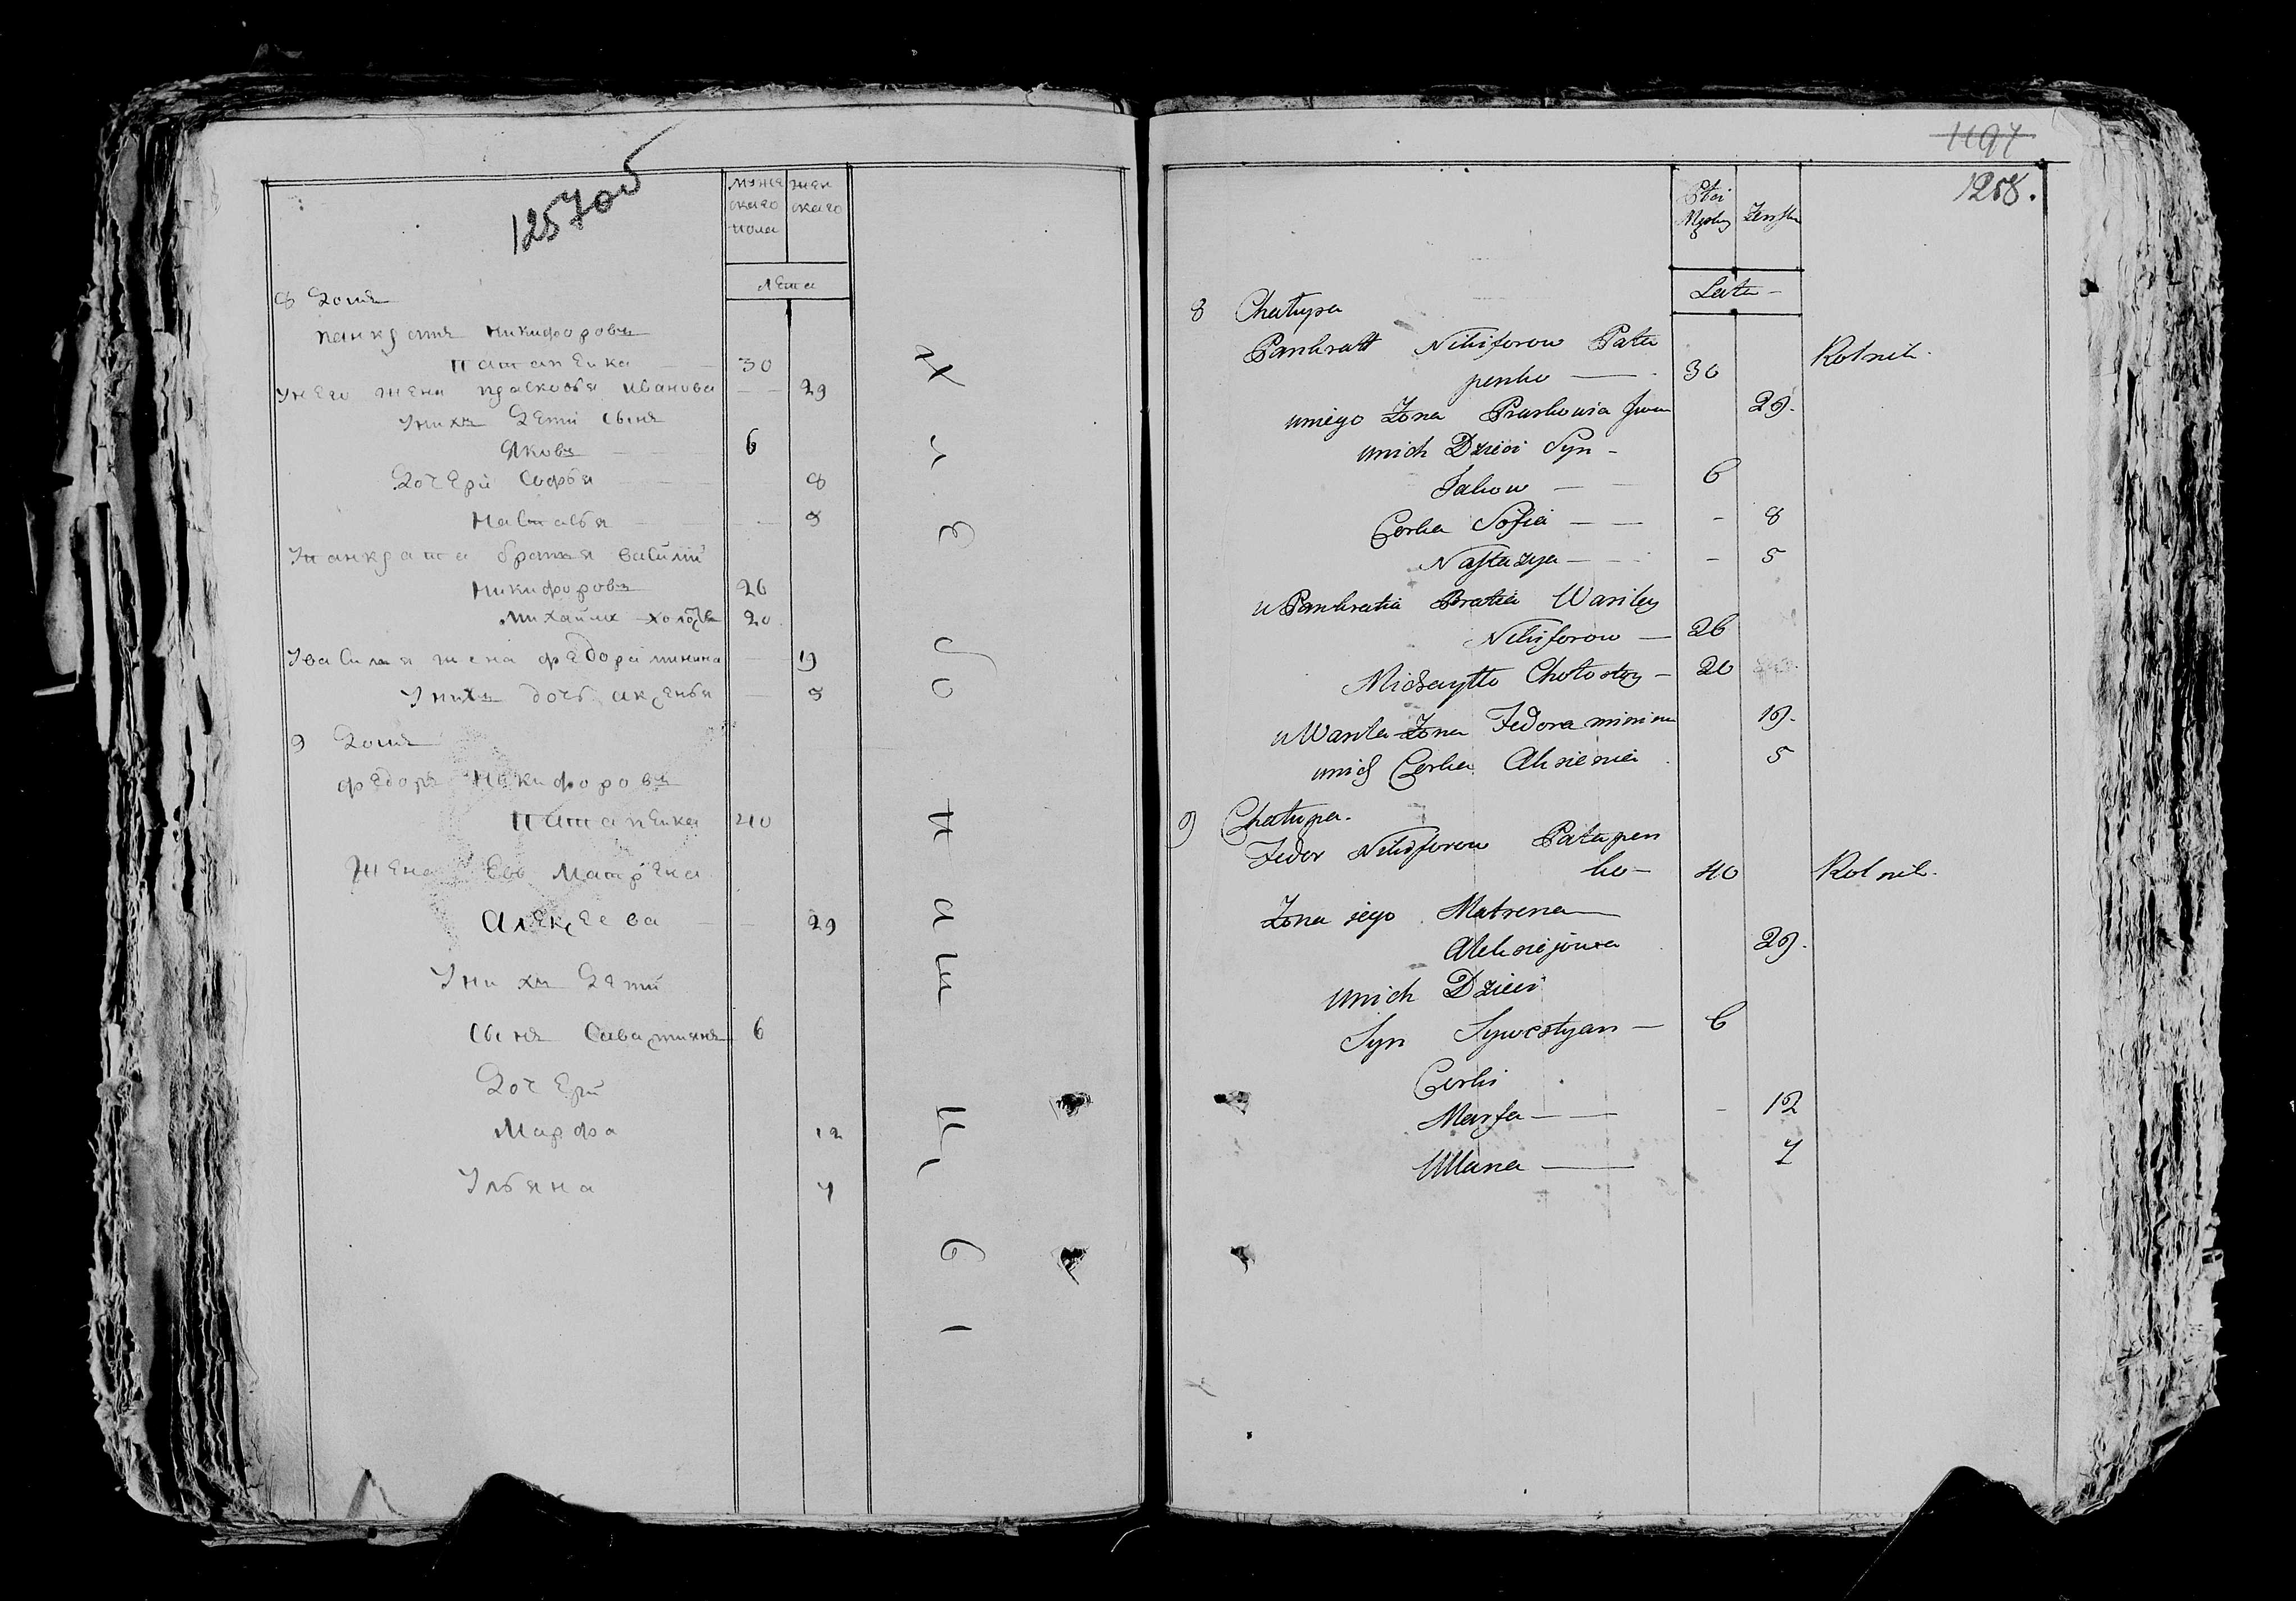 1257об
муже
скаго
пола
жен
скаго
лета
8 Домъ
панкратъ Никифоровъ
Патапенка 30
Унего жена правковья иванова 29
Унихъ Дети сынъ
Яковъ 6
Дочери Софья 8
Настасья 5
Упанкрата братья василий
Никифоровъ 26
михайла холостъ 20
Увасиля жена федора минина 19
Унихъ дочь аксенья 5
9 Домъ
федоръ Никифоровъ
Патапенка 40
Жена Ево Матрена
Алексеева 29
Унихъ Дети
Сынъ Савастиянъ 6
Дочери
Марфа 12
Ульяна 7
Хлебопашцы
1197
1258.
Płci
Męskiej
Żeńskiej
Lata
8 Chałupa
Pankratt Nikiforow Pata
penko 30 Rolnik.
uniego Żona Praskowia Iwan 29.
unich Dzieci Syn
Jakow 6
Corka Sofia 8
Nastazya 5
u Pankratia Bratia Wasiley
Nikiforow 26
Michayło Chołostoy 20
u Wasila Żona Fedora minina 19.
unich Corka Aksienia 5
9 Chałupa.
Fedor Nikiforow Patapen
ko 40 Rolnik.
Żona jego Matrena
Aleksiejowa 29.
unich Dzieci
Syn Sywestyan 6
Corki
Marfa 12
Ullana 7